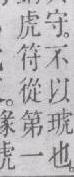 守。不以琥也
虎符從第一
。緣虎